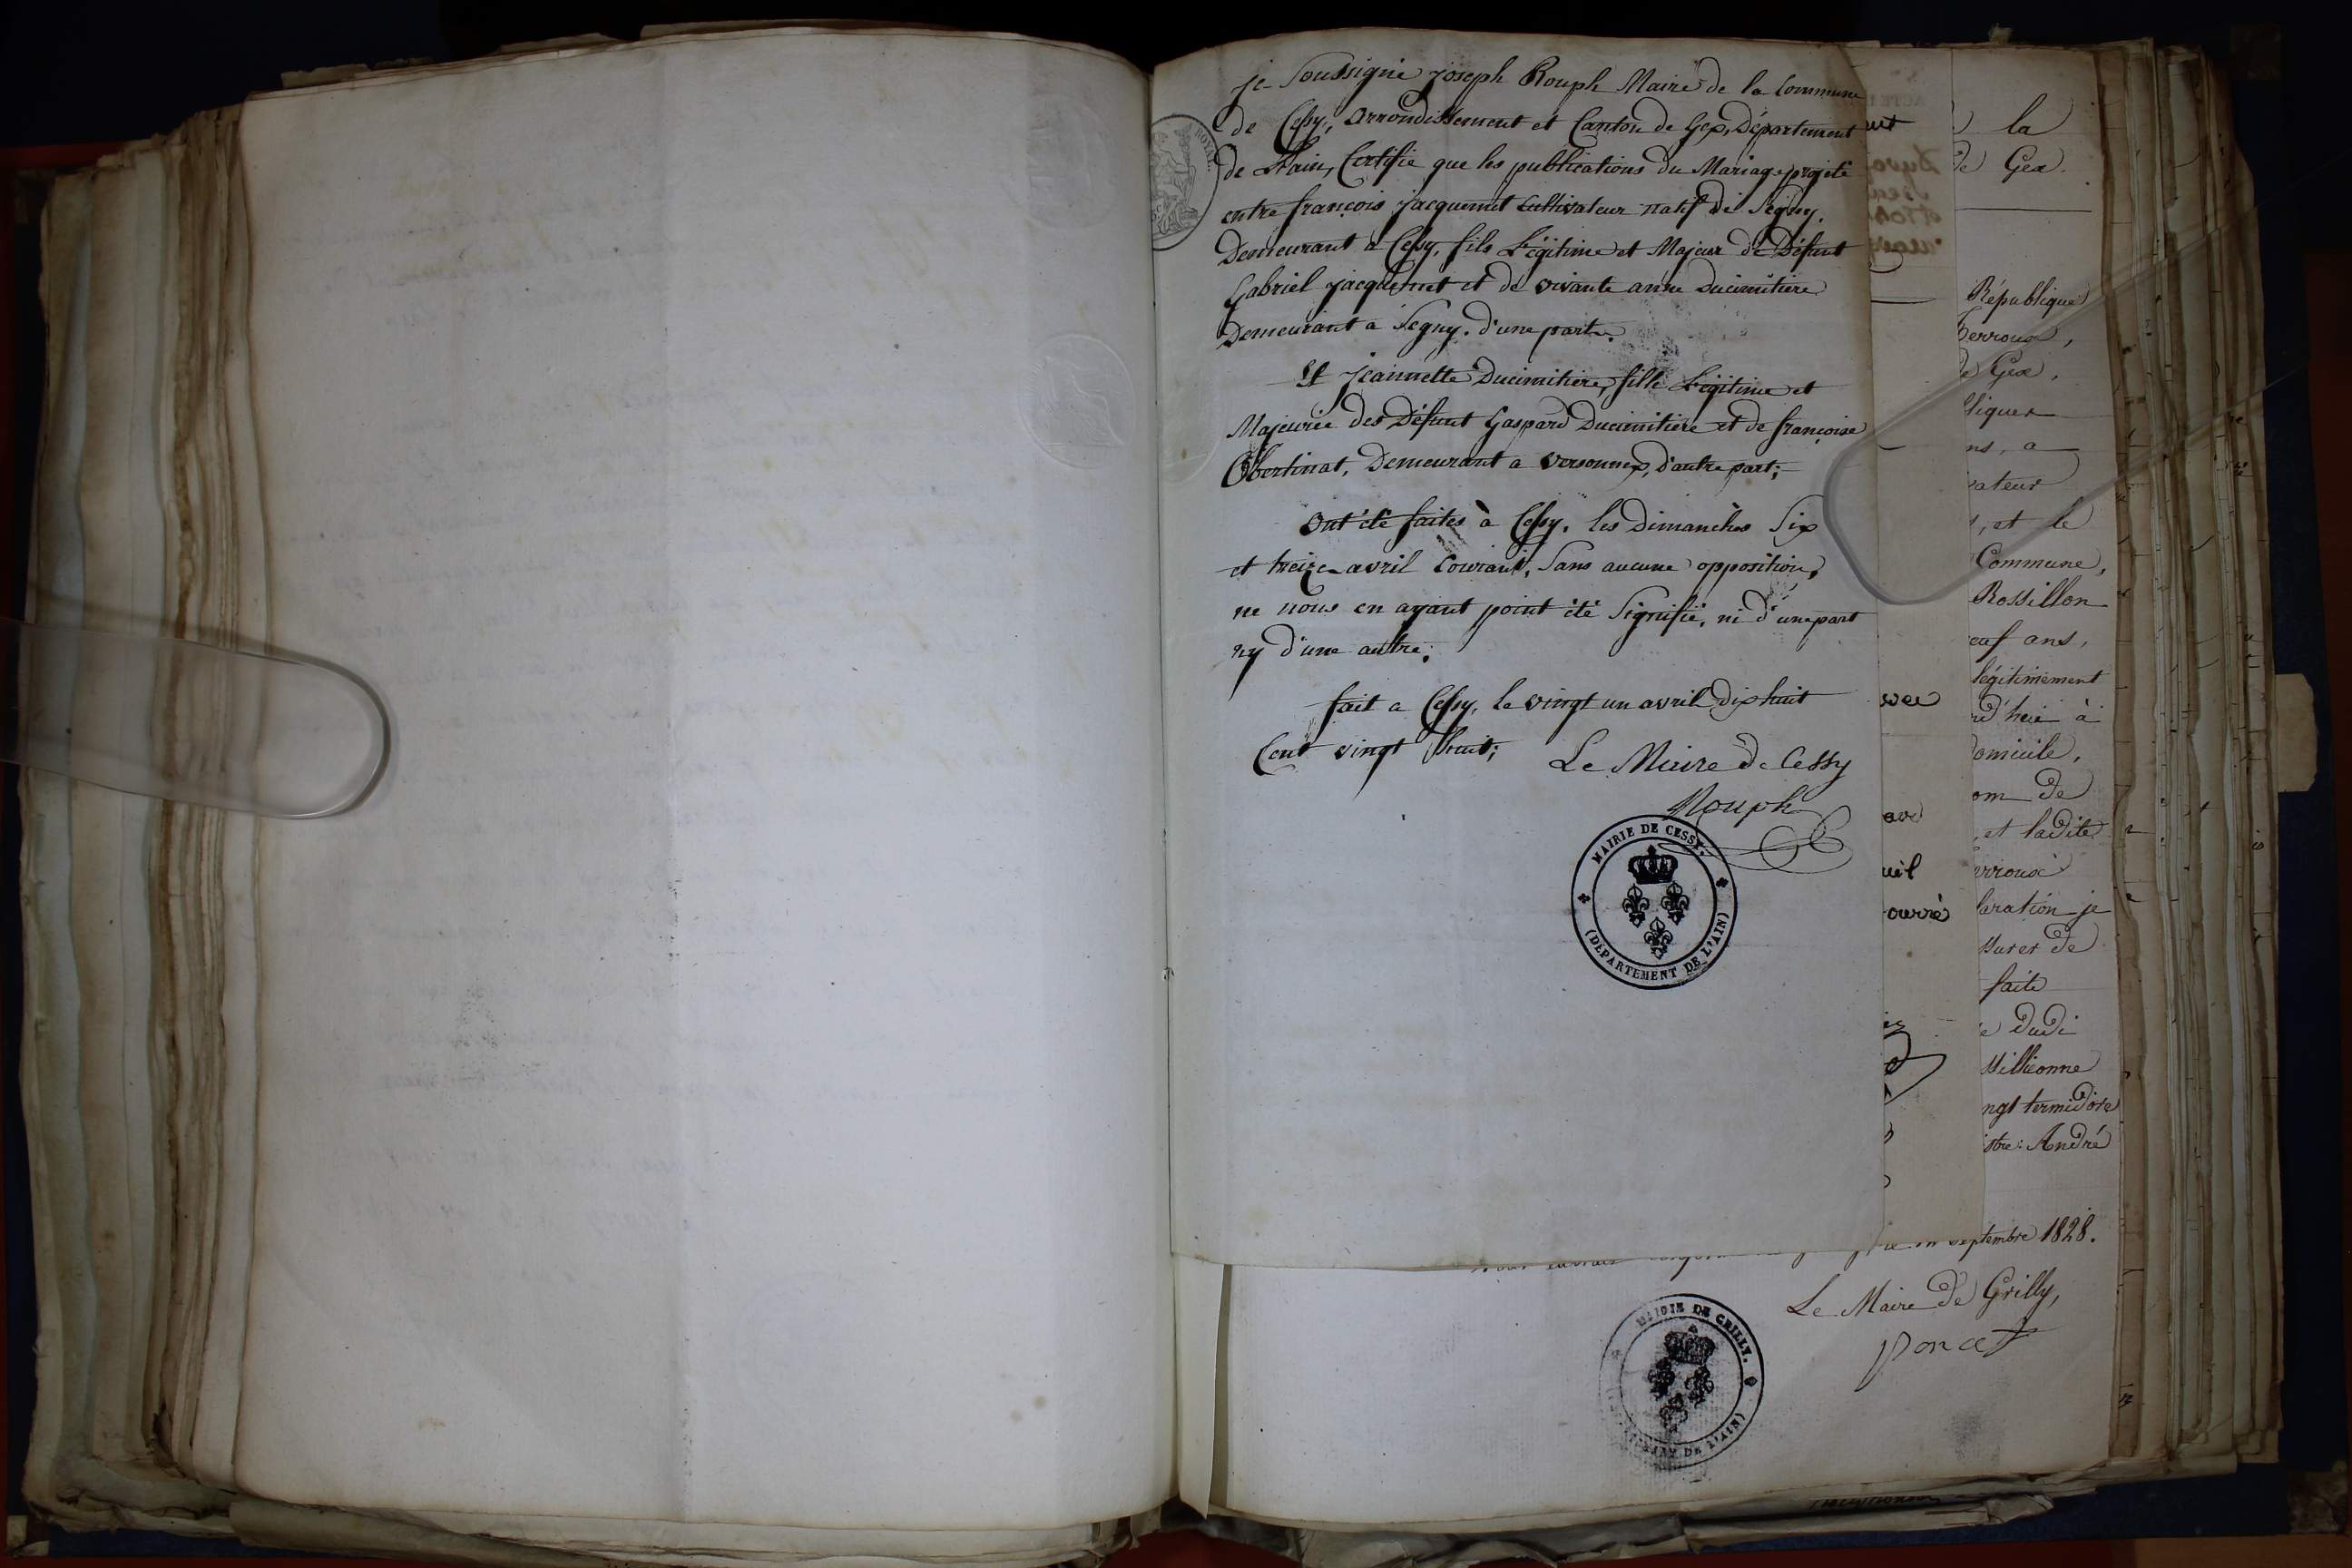 je Soussigné joseph Rouph Maire de la Commune
de Cessy, arrondissement et Canton de Gex, Département
de L'ain, Certifie que les publications du Mariage projeté
entre françois jacquemet Cultivateur natif de Segny.
Demeurant a Cessy, fils Légitime et Majeur de Défunt
Gabriel jacquemet et de vivante anne Ducimitiere
Demeurant a Segny. d'une part.
Et jeannette Ducimitiere, fille Légitime et
Majeurée des Défunt Gaspard Ducimitiere et de françoise
Obertinat, Demeurant a versonnex, d'autre part;
ont été faites à Cessy, les dimanches Six
et treize avril Courant, Sans aucune opposition,
ne nous en ayant point été Signifié, ni d'une part
ny d'une autre;
fait a Cessy, le vingt un avril dix huit
Cent vingt huit;
Le Maire de Cessy
Rouph
MAIRIE DE CESSY.
(DÉPARTEMENT DE L'AIN)
ROYAL
la
de Gex.
République
de Gex,
ns, a
, et le
Commune,
Rossillon
euf ans,
légitimement
rd'hui à
domicile,
om de
, et ladite
laration je
ssurer de
faite
e dudi
ngt termidore
stre: André
septembre 1828.
Le Maire de Grilly,
Poncet
MAIRIE DE GRILLY.
DE L'AIN)